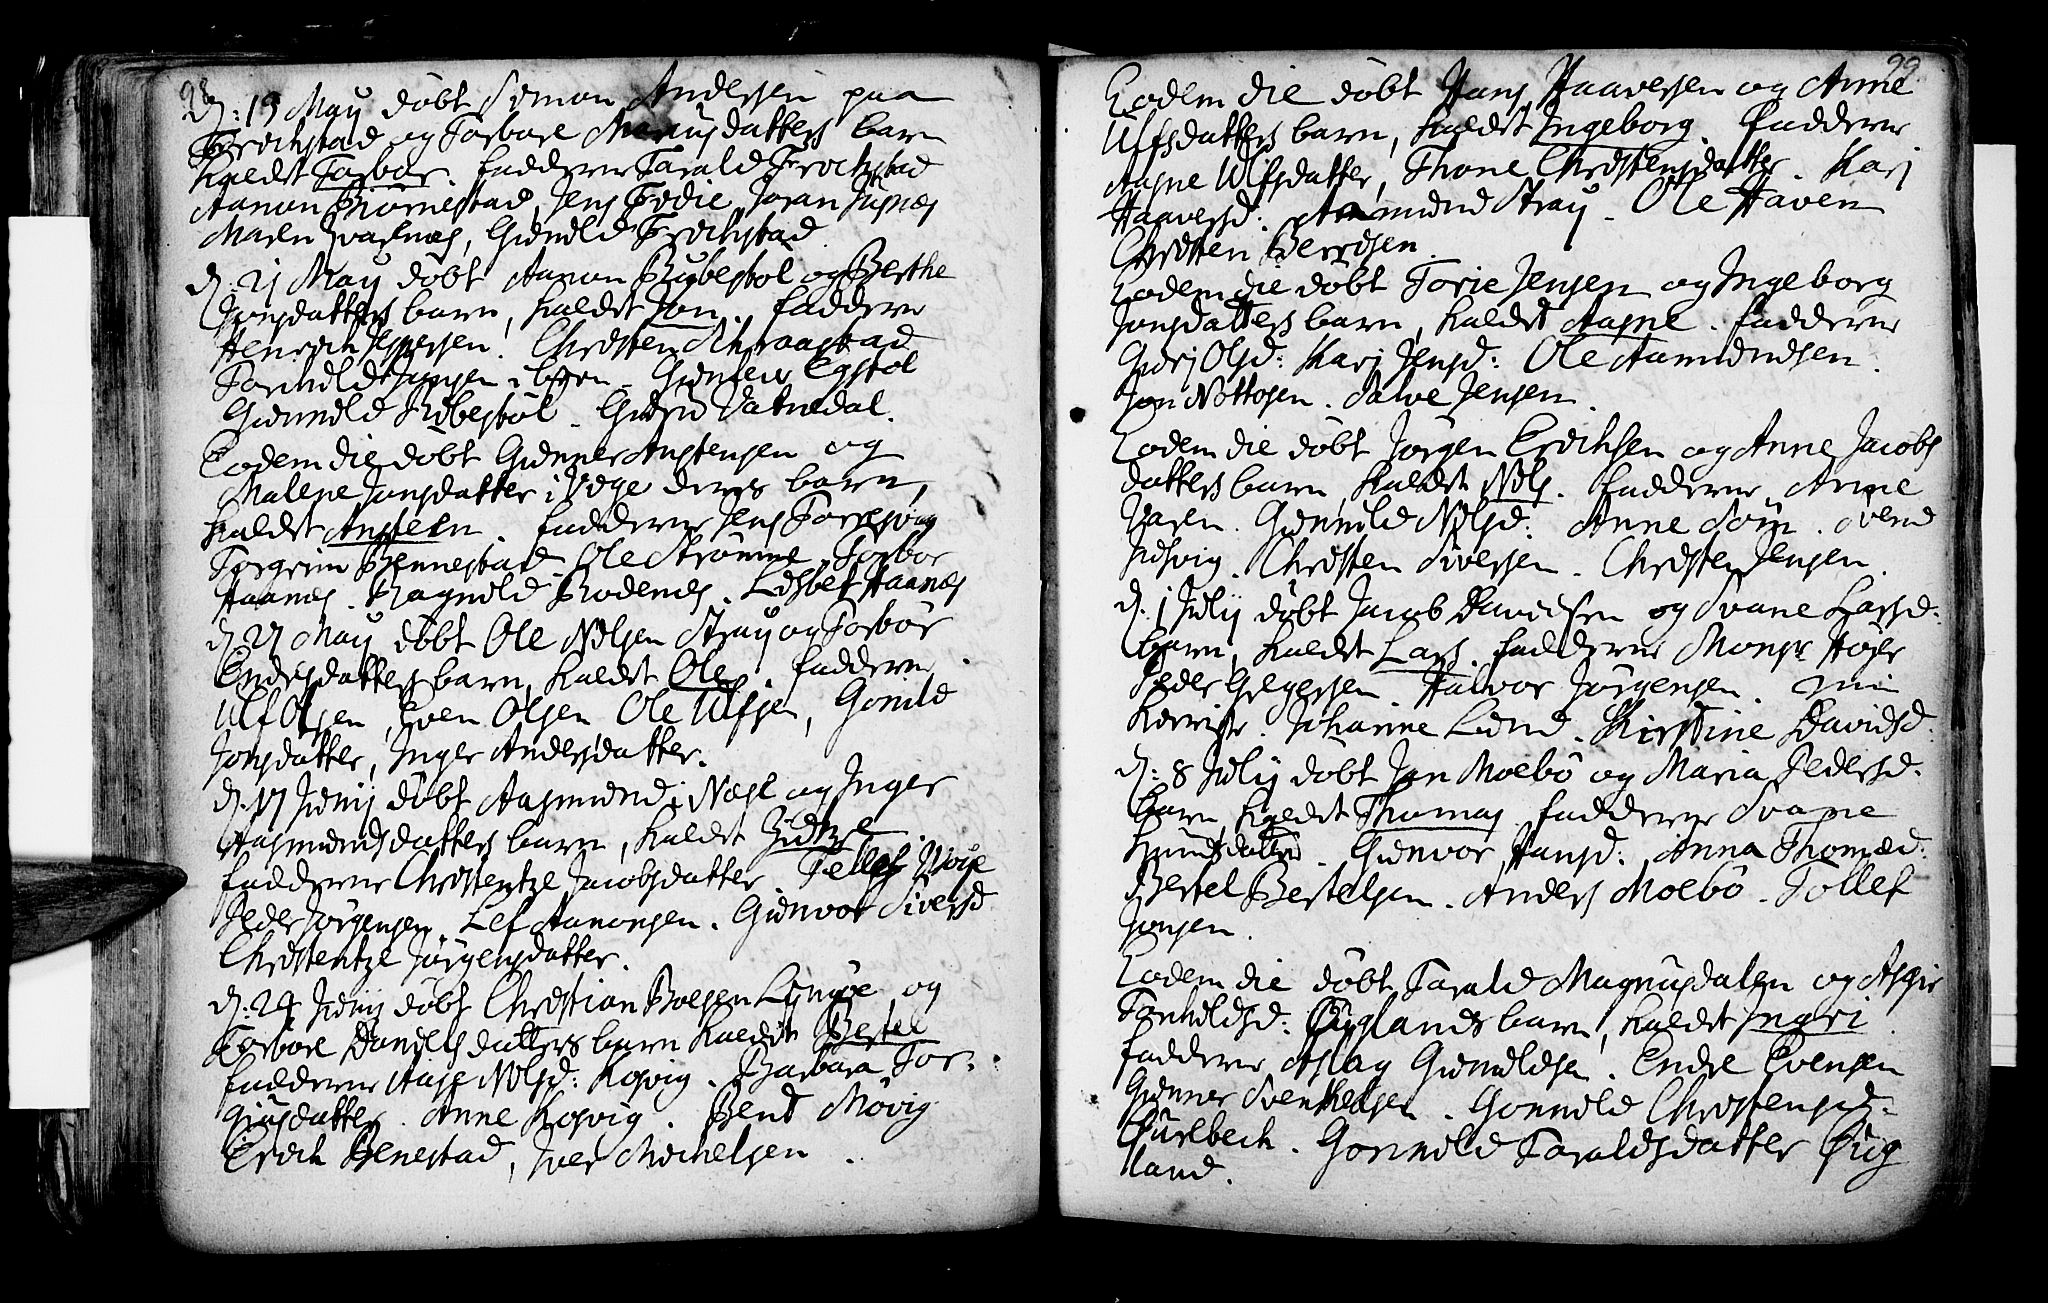 98
d: 19 May döbt Simon Andersen paa
Frochstad og Torbore Mariusdatters barn
kaldet Torbor. fadderne Tarald Frochstad
Aanon Biörnestad, Jens Fidie, Joran
Maren Qvarnes, Gunild Frochstad
d: 21 May döbt Aanon Ribestöl og Berthe
Jonsdatters barn, kaldet Jon. fadderne
Henrich Jessesen. Christen Schraastad
Torkild i byen. Gunleu Egstöl
Gunnild Ribestöl. Gudru Vatnedal.
Eodem die döbt Gunner Anstensen og
Malene Jonsdatter i Vege deres barn,
kaldet Anstein. fadderne Jens Torresvig
Torgrim Bennestad. Ole Strömme. Torbor
Haanes. Ragnild Rodenes. Lisbet Haanes
d: 27 May döbt Ole Nilsen Stray og Torbör
Endresdatters barn, kaldet Ole. fadderne
Ulf Olsen, Even Olsen Ole Ulfsen, Gonild
Jonsdatter, Inger Andersdatter.
d: 17 Junij döbt Aasmund i NesE og Inger
Aasmundsdatters barn, kaldet Zidzel
fadderne Christentze Jacobsdatter. Tellef Voie
Peder Jörgensen. Lef Aanonsen. Gunvor Siversd
Christentze Jörgensdatter.
d: 24 Junij döbt Christian Boesen Lyngöe og
Torbore Danielsdatters barn kaldet Bertel
fadderne Aase Nilsd: Kosvig. Barbara Tor-
giusdatter. Anne Kosvig. Bent Mövig
Erich Benestad, Iver Michelsen.
99
Eodem die döbt Hans Haaversen og Anne
Ulfsdatters barn, kaldet Ingeborg. fadderne
Aasne Ulfsdatter, Thone Christensdatter. Kari
Haaversd: Aamund Stray. Ole Haven
Christen Berrdsen.
Eodem die döbt Torie Jensen og Ingeborg
Jonsdatters barn, kaldet Aasne. fadderne
Guri Olsd: Kari Jensd: Ole Aamundsen.
Jon Nottosen. Salve Jensen.
Eodem die döbt Jörgen Erichsen og Anne Jacobs
datters barn, kaldet Nils. fadderne Anne
Varen. Gunnild Nilsd: Anne Söm. Svend
Justvig. Christen Siversen. Christen Jensen.
d: 1 Julij döbt Jacob Davidsen og Svane Larsd:
barn, kaldet Lars. fadderne Monsr Höyer
Peder Gregersen. Halvor Jörgensen. min
Johanne Lund. Kirstine Davidsd
d: 8 Julij döbt Jon Moebö og Maria Pedersd.
barn, kaldet Thomas. fadderne Svane
Knudsdatter. Gunvor Hansd: Anna Thomæd:
Bertel Bertelsen. Anders Moebö. Tollef
Jonsen.
Eodem die döbt Tarald Magnusdalen og Assier
Tonkildsd: Öyglands barn, kaldet Ingri
fadderne Aslag Gunnildsen. Endre Evensen
Gunner Svenkedsen. Gonnild Christensd:
Ourebech. Gonnild Taraldsdatter Öyg
land.